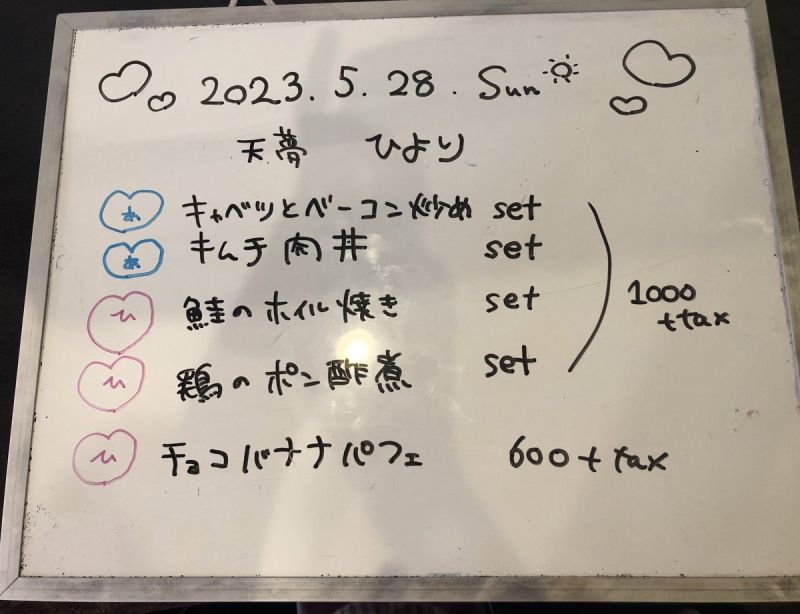 2023.5.28.Sun
天夢 ひより
あ キャベツとベーコン炒め set
あ キムチ肉丼 set
ひ 鮭のホイル焼き set
1000 +tax
ひ 鶏のポン酢煮 set
ひ チョコバナナパフェ 600+tax